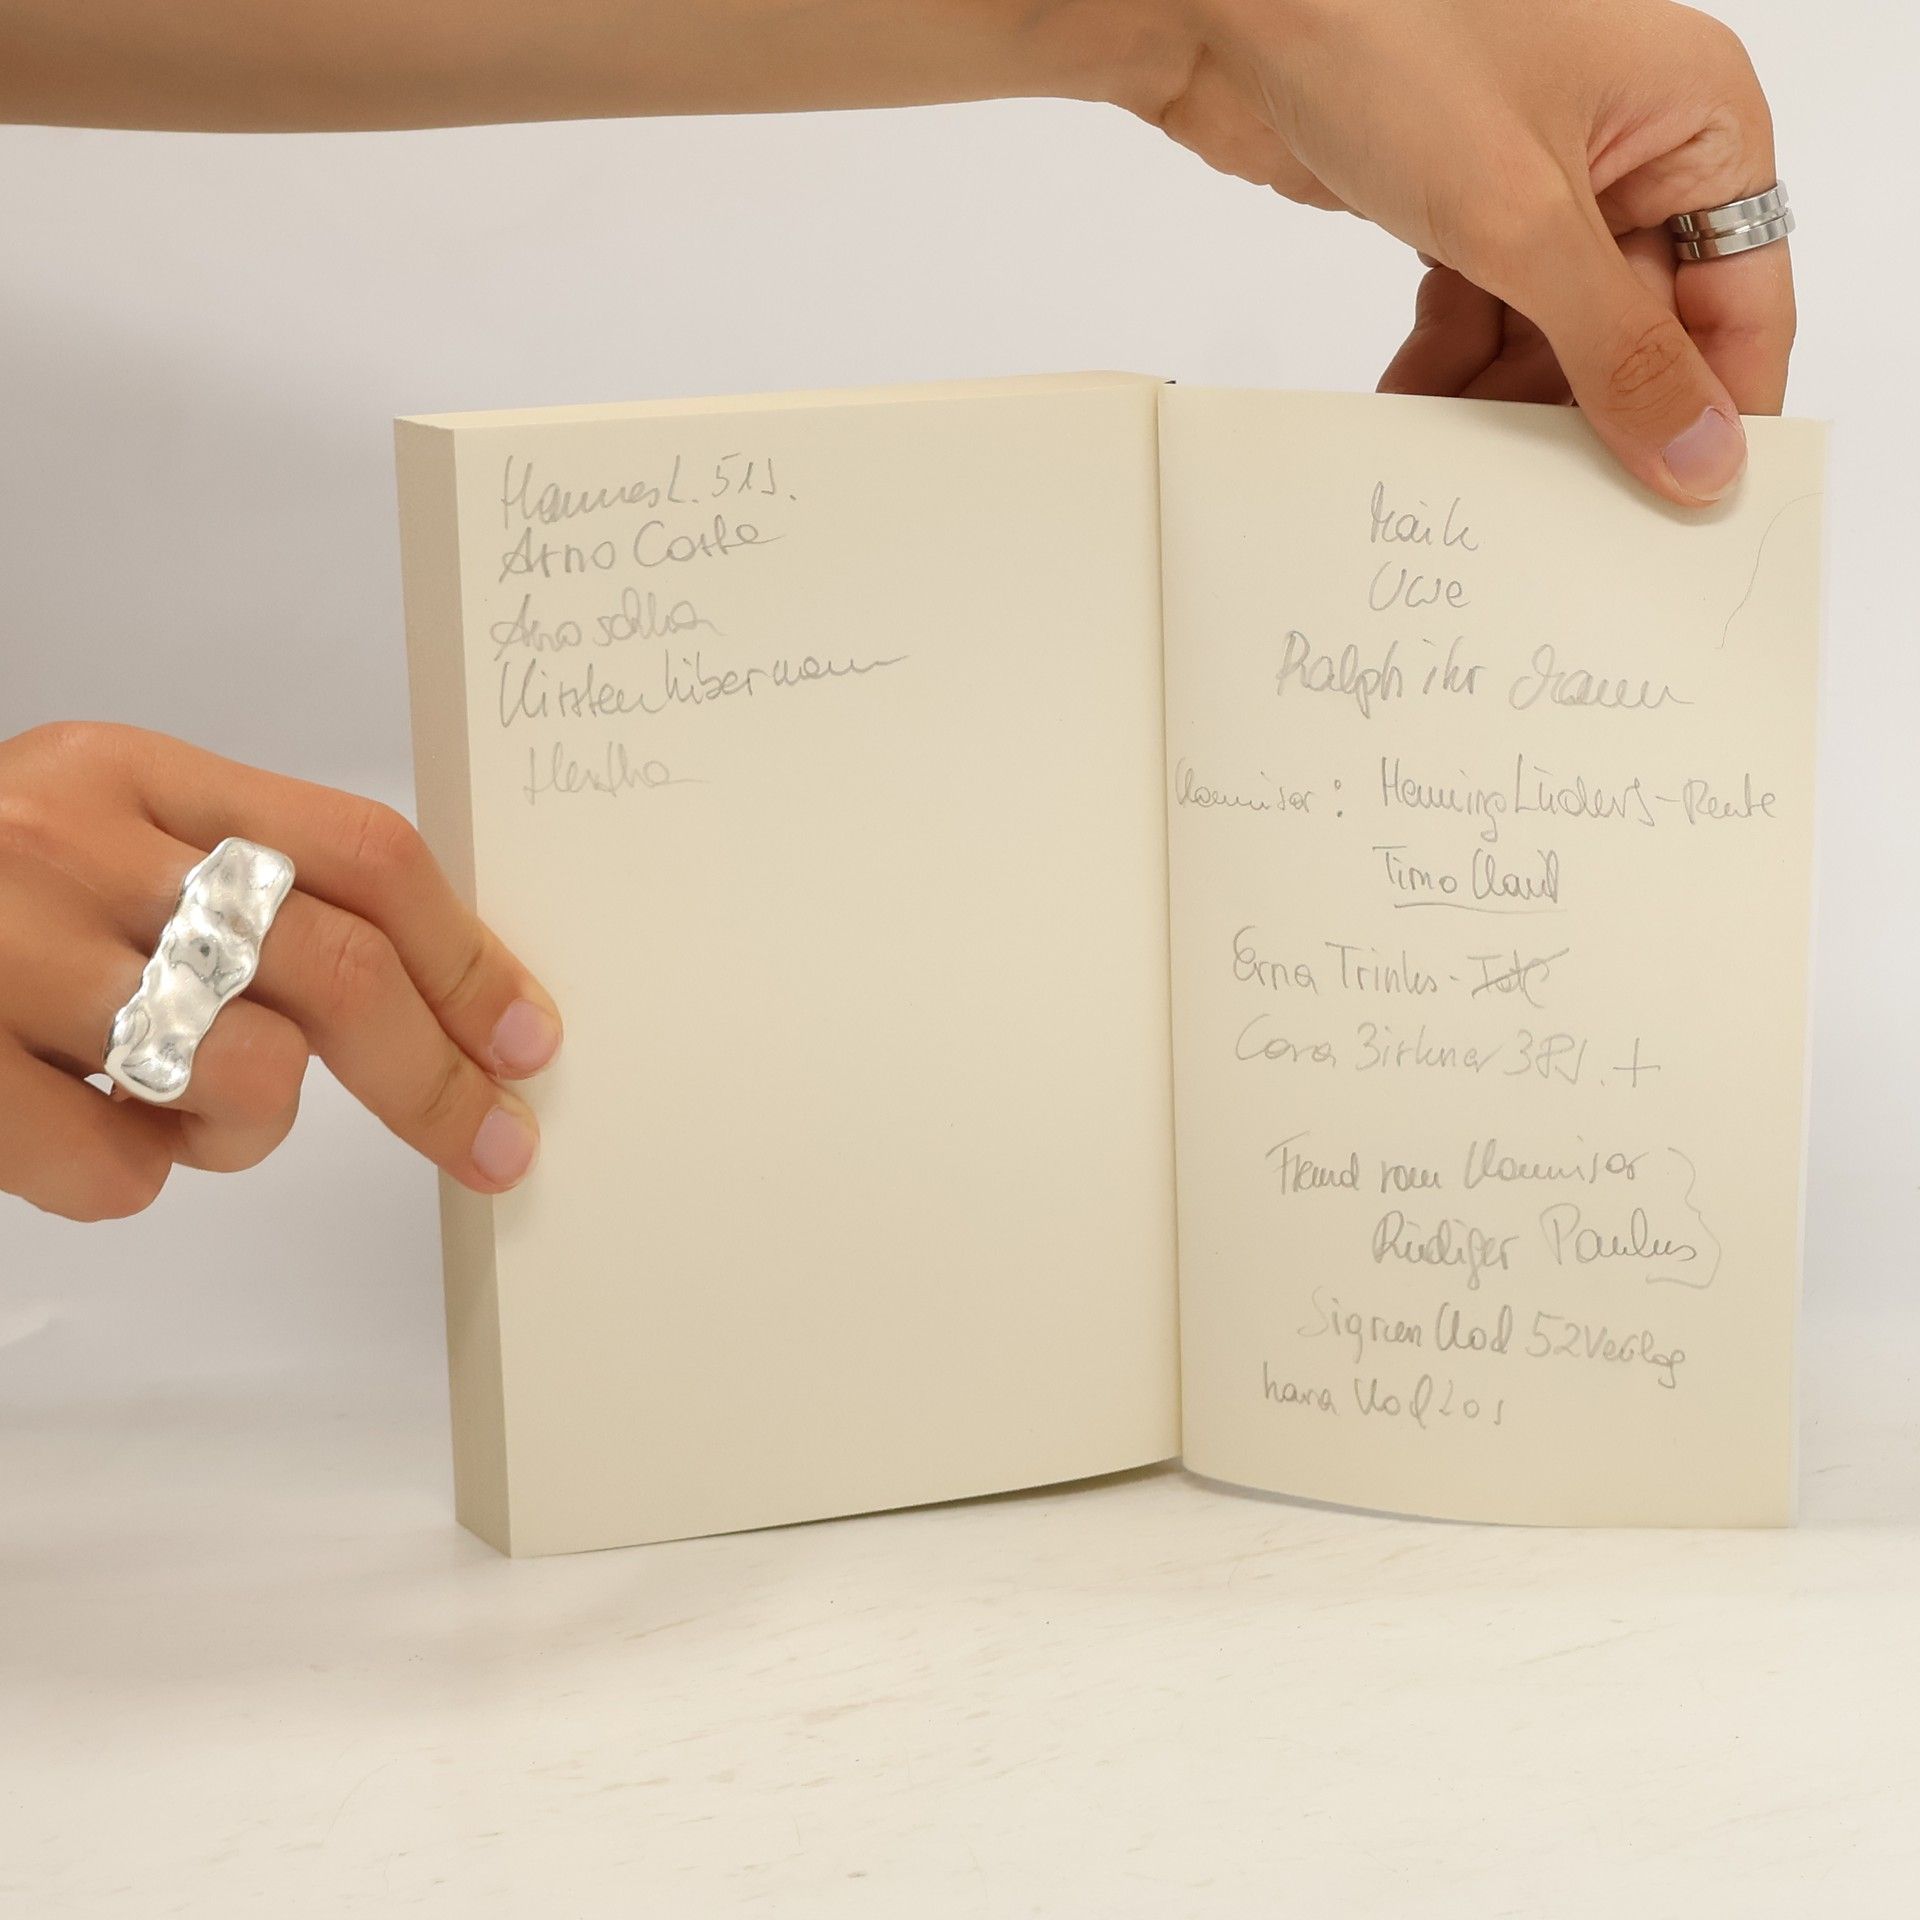 Hannes L. 51 J.
Arno Coste
Kirsten Libermann
Hertha
Maik
Uwe
Ralph ihr Mann
Kommisar: Henning Lüders - Rente
Timo
Erna Trinks -
Cora Birkner 38 J. +
Freund vom Kommisar
Rüdiger Paulus
Sigrun Kod 52 Verlag